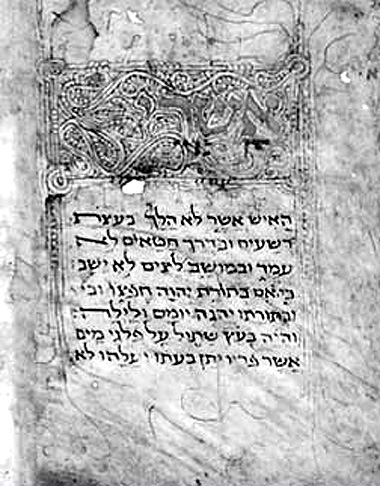 אשרי
האיש אשר לא הלך בעצת
רשעים ובדרך חטאים לא
עמד ובמושב לצים לא ישב
כי אם בתורת יהוה חפצו ובי
ובתורתו יהגה יומם ולילה
והיה כעץ שתול על פלגי מים
אשר פריו יתן בעתו ועלהו לא